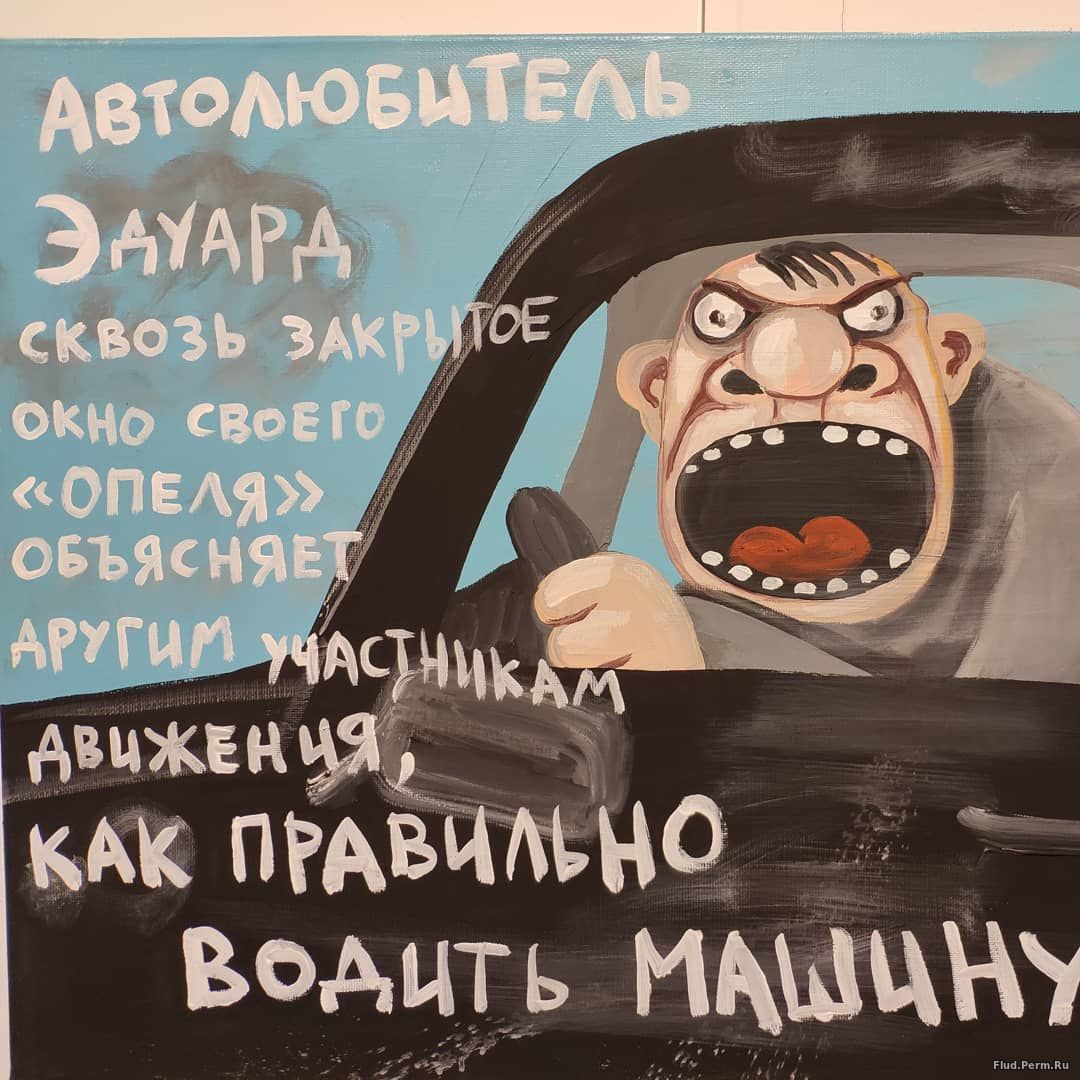 Автолюбитель
Эдуард
сквозь закрытое
окно своего
«Опеля»
объясняет
другим участникам
движения,
как правильно
водить машину
Flud.Perm.Ru